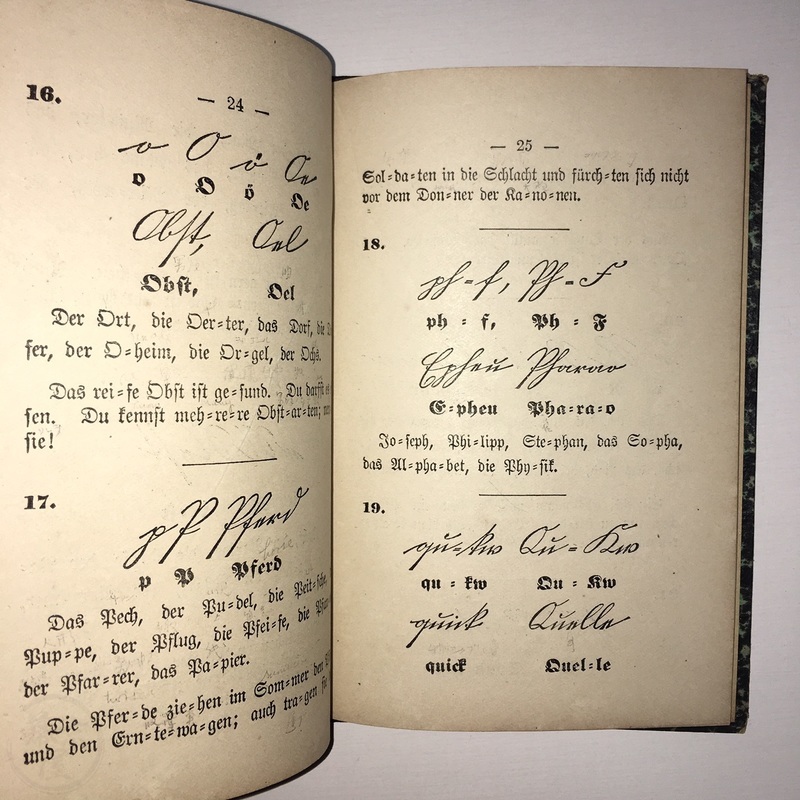 16.
— 24 —
o O ö Oe
o O ö Oe
Obst, Oel
Obst, Oel
Der Ort, die Oer-ter, das Dorf, die
fer, der O-heim, die Or-gel, der Ochs.
Das rei-fe Obst ist ge-sund. Du darfst es
sen. Du kennst meh-re-re Obst-ar-ten;
sie!
17.
p P Pferd
p P Pferd
Das Pech, der Pu-del, die Peit-sche,
Pup-pe, der Pflug, die Pfei-fe, die
der Pfar-rer, das Pa-pier.
Die Pfer-de zie-hen im Som-mer den
und den Ern-te-wa-gen; auch tra-gen sie
— 25 —
Sol-da-ten in die Schlacht und fürch-ten sich nicht
vor dem Don-ner der Ka-no-nen.
18.
ph - f, Ph - F
ph - f, Ph - F
Epheu Pharao
E-pheu Pha-ra-o
Jo-seph, Phi-lipp, Ste-phan, das So-pha,
das Al-pha-bet, die Phy-sik.
19.
qu - kw Qu - Kw
qu - kw Qu - Kw
quick Quelle
quick Quel-le